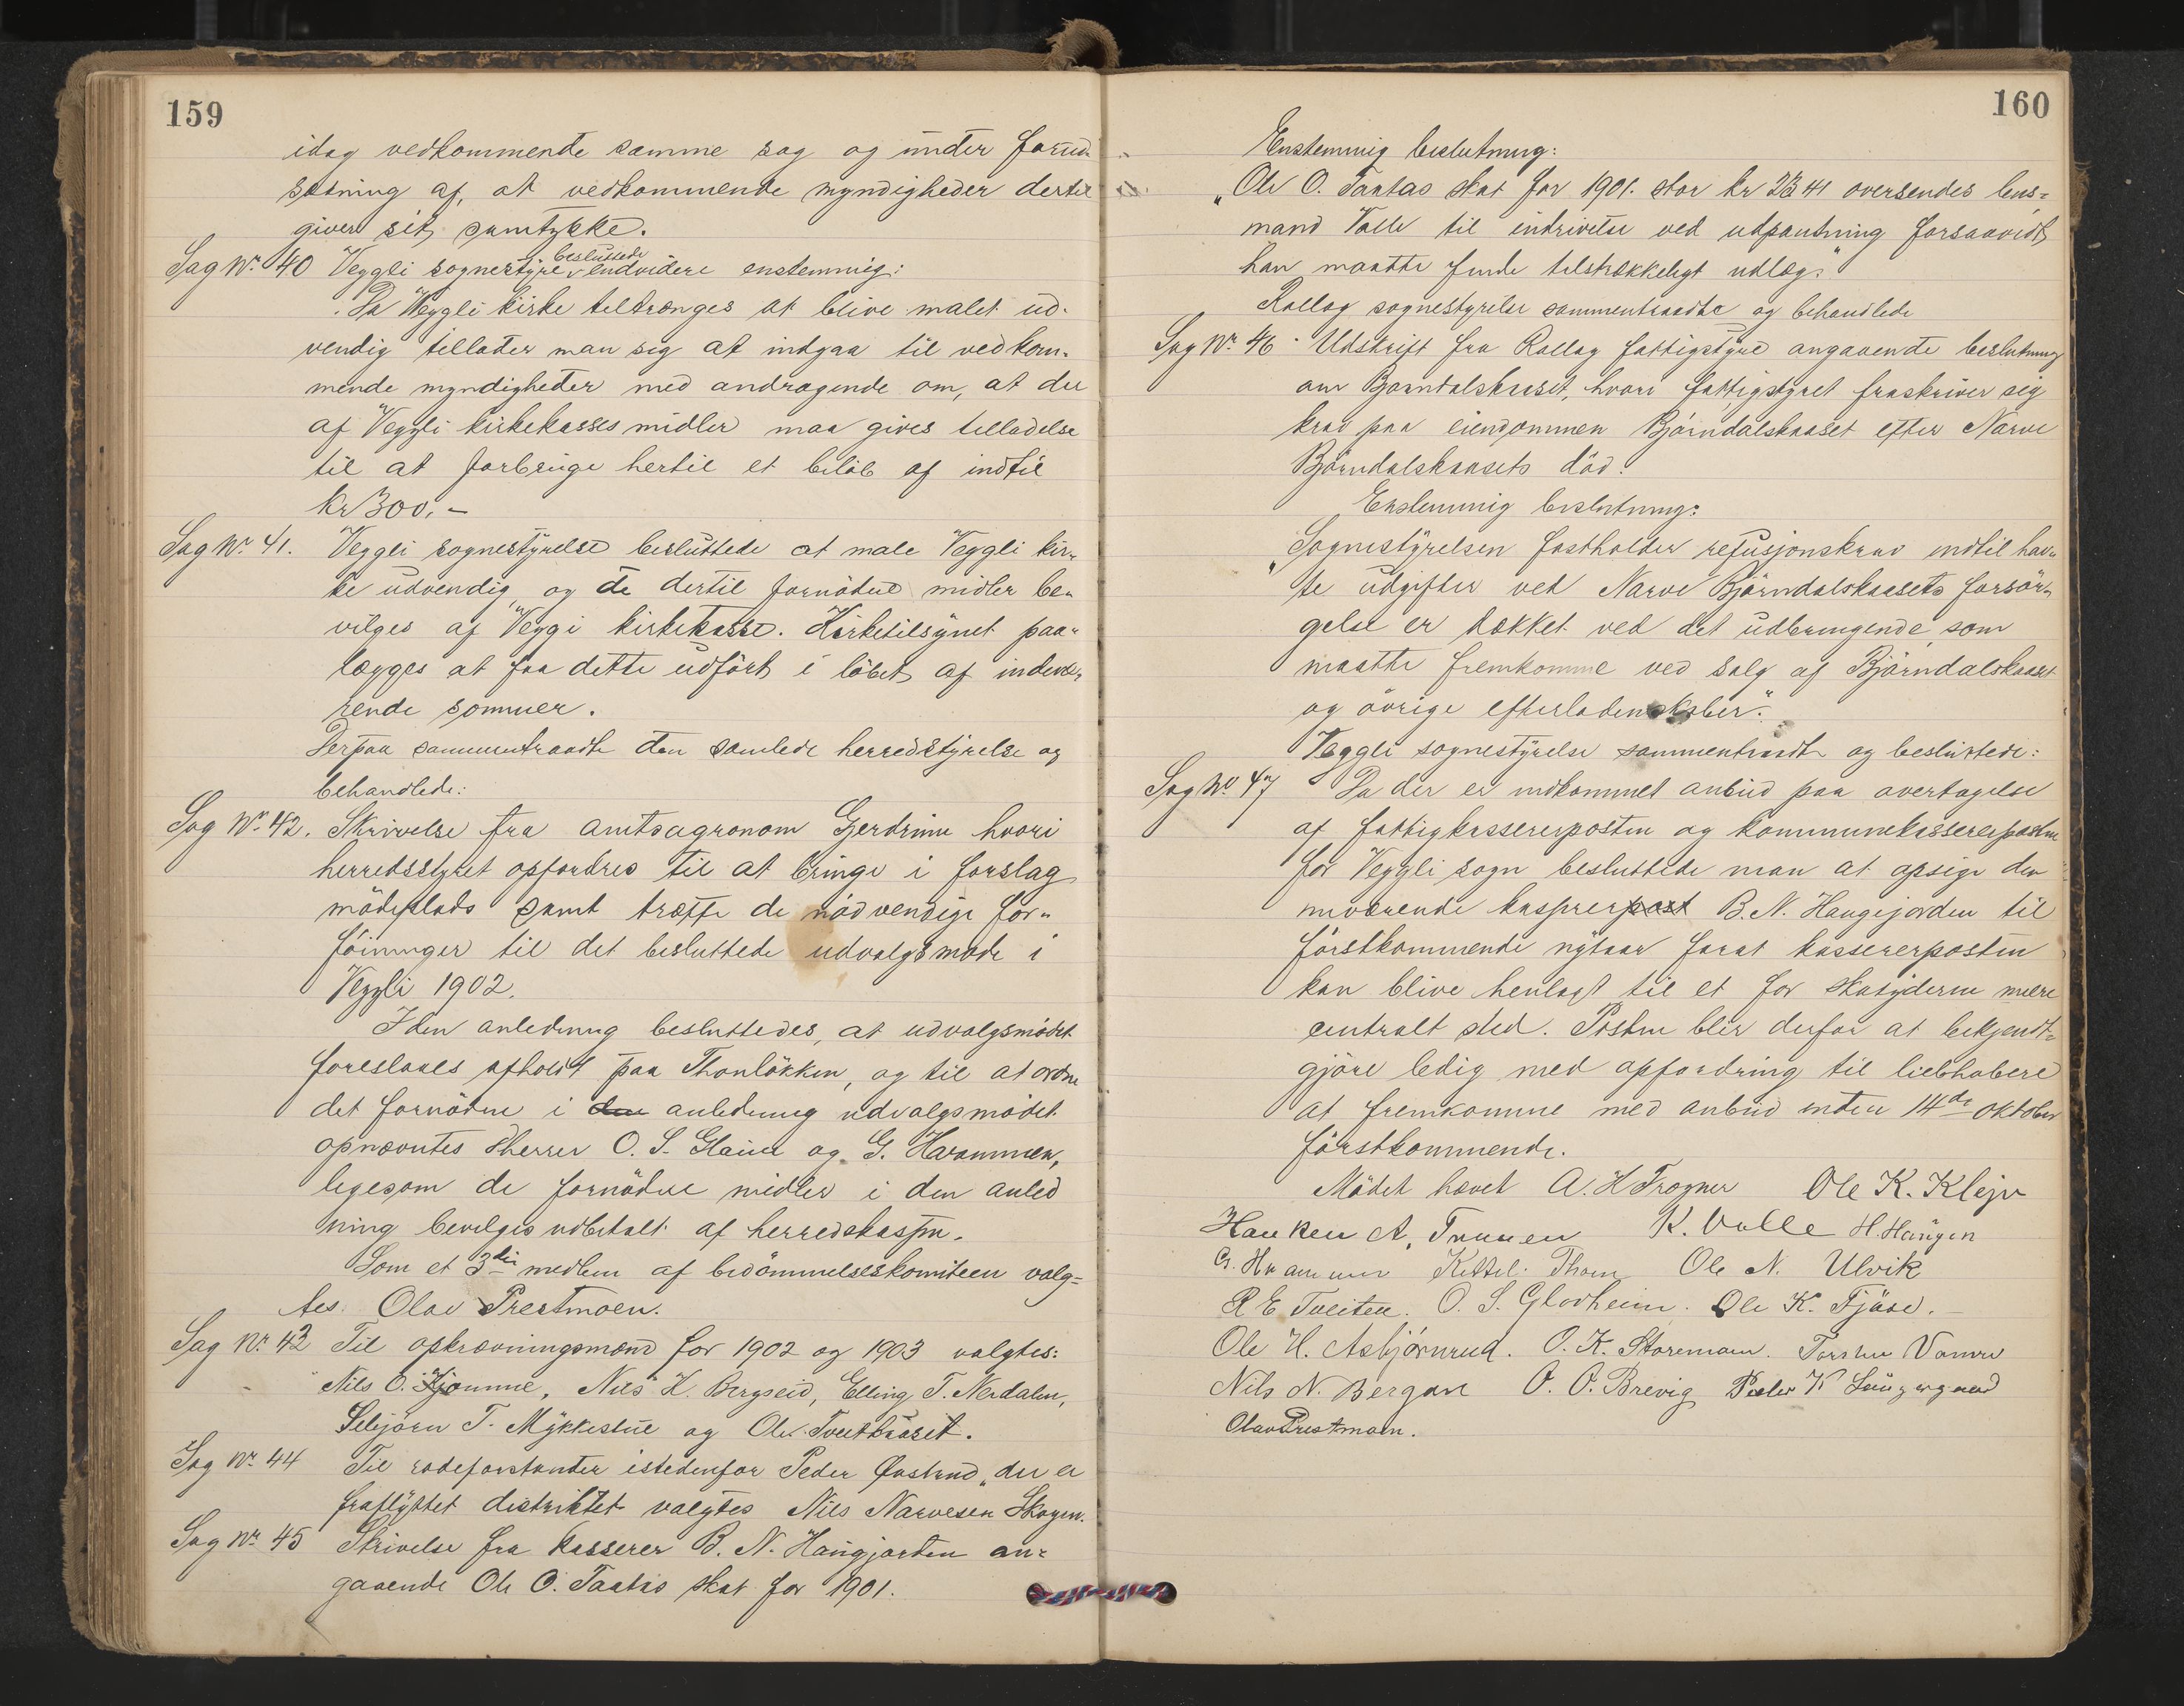 159
idag vedkommende samme sag og under forud-
sætning af, at vedkommende myndigheder dertil
giver sit samtykke.
Sag Nr. 40 Veggli sognestyre besluttede endvidere enstemmig:
Da Veggli kirke tiltrænges at blive malet ud-
vendig tillader man sig at indgaa til vedkom-
mende myndigheder med andragende om, at der
af Veggli kirkekasses midler maa gives tilladelse
til at forbruge hertil et beløb af indtil
Kr 300.-
Sag Nr. 41. Veggli sognestyrelse besluttede at male Veggli kir-
ke udvendig, og de dertil fornødne midler be-
vilges af Veggi kirkekasse. Kirketilsynet paa-
lægges at faa dette udført i løbet af indevæ-
rende sommer.
Derpaa sammentraadte den samlede herredstyrelse og
behandlede:
Sag Nr. 42. Skrivelse fra amtsagronom Gjerdrum hvori
herredsstyret opfordres til at bringe i forslag
mødeplads samt træffe de nødvendige for-
føininger til det besluttede udvalgsmøde i
Veggli 1902.
I den anledning besluttedes, at udvalgsmødet
foreslaaes afholdt paa Thonløkken, og til at ordne
det fornødne i den anledning udvalgsmødet
opnævntes dherrer O. S. og G. Harammen,
ligesom de fornødne midler i den anled
ning bevilges udbetalt af herredskassen.
Som et 3die medlem af bedømmelseskomiteen valg-
tes Olav Prestmoen.
Sag Nr. 43 Til opkrævningsmænd for 1902 og 1903 valgtes:
Nils O. Kjomme, Nils K. Bergseid, Elling T. Nerdalen,
Sebjørn T. Mykkestue og Ole Tveitbraset.
Sag Nr. 44 Til rodeforstander istedenfor Peder Øvstrud, der er
fraflyttet distriktet valgtes Nils Narvesen Skogen.
Sag Nr. 45 Skrivelse fra kasserer B. N. Haugjorden an-
gaaende Ole O. Taatas skat for 1901.
160
Enstemmig beslutning:
"Ole O. Taatas skat for 1901. stor kr 23 41 oversendes lens-
mand Valle til inddrivelse ved udpantning forsaavidt
han maatte finde tilstrækkeligt udlæg."
Rollag sognestyrelse sammentraadte og behandlede
Sag Nr. 46 Udskrift fra Rollag fattigstyre angaaende beslutning
om Bjørndalskaaset, hvori fattigstyret fraskriver sig
krav paa eiendommen Bjørndalskaaset efter Narve
Bjørndalskaasets død.
Enstemmig beslutning:
"Sognestyrelsen fastholder refusjonskrav indtil hav-
te udgifter ved Narve Bjørndalskaasets forsør-
gelse er dækket ved det udbringende som
maatte fremkomme ved salg af Bjørndalskaaset
og øvrige efterladenskaber."
Veggli sognestyrelse sammentraadte og besluttede:
Sag Nr. 47 Da der er indkommet anbud paa overtagelse
af fattigkassererposten og kommunekassererposten
for Veggli sogn besluttede man at opsige den
nuværende kasserer post B. N. Haugejorden til
førstkommende nytaar forat kassererposten
kan blive henlagt til et for skatyderne mere
centralt sted. Posten blir derfor at bekjendt-
gjøre ledig med opfordring til liebhabere
at fremkomme med anbud inden 14de oktober
førstkommende.
Mødet hævet A. H Frogner Ole K. Klejv
Haaken A. K. Valle H. Haugen
G. Kittil Thom Ole N. Ulvik
R E Tveiten. O. S. Glodheim. Ole K. Fjøse.
Ole H. Asbjørnrud. O. K. Storemoen. Torsten Vamre
Nils N. Bergan O. O. Brevig Peder K
Olav Prestmoen.